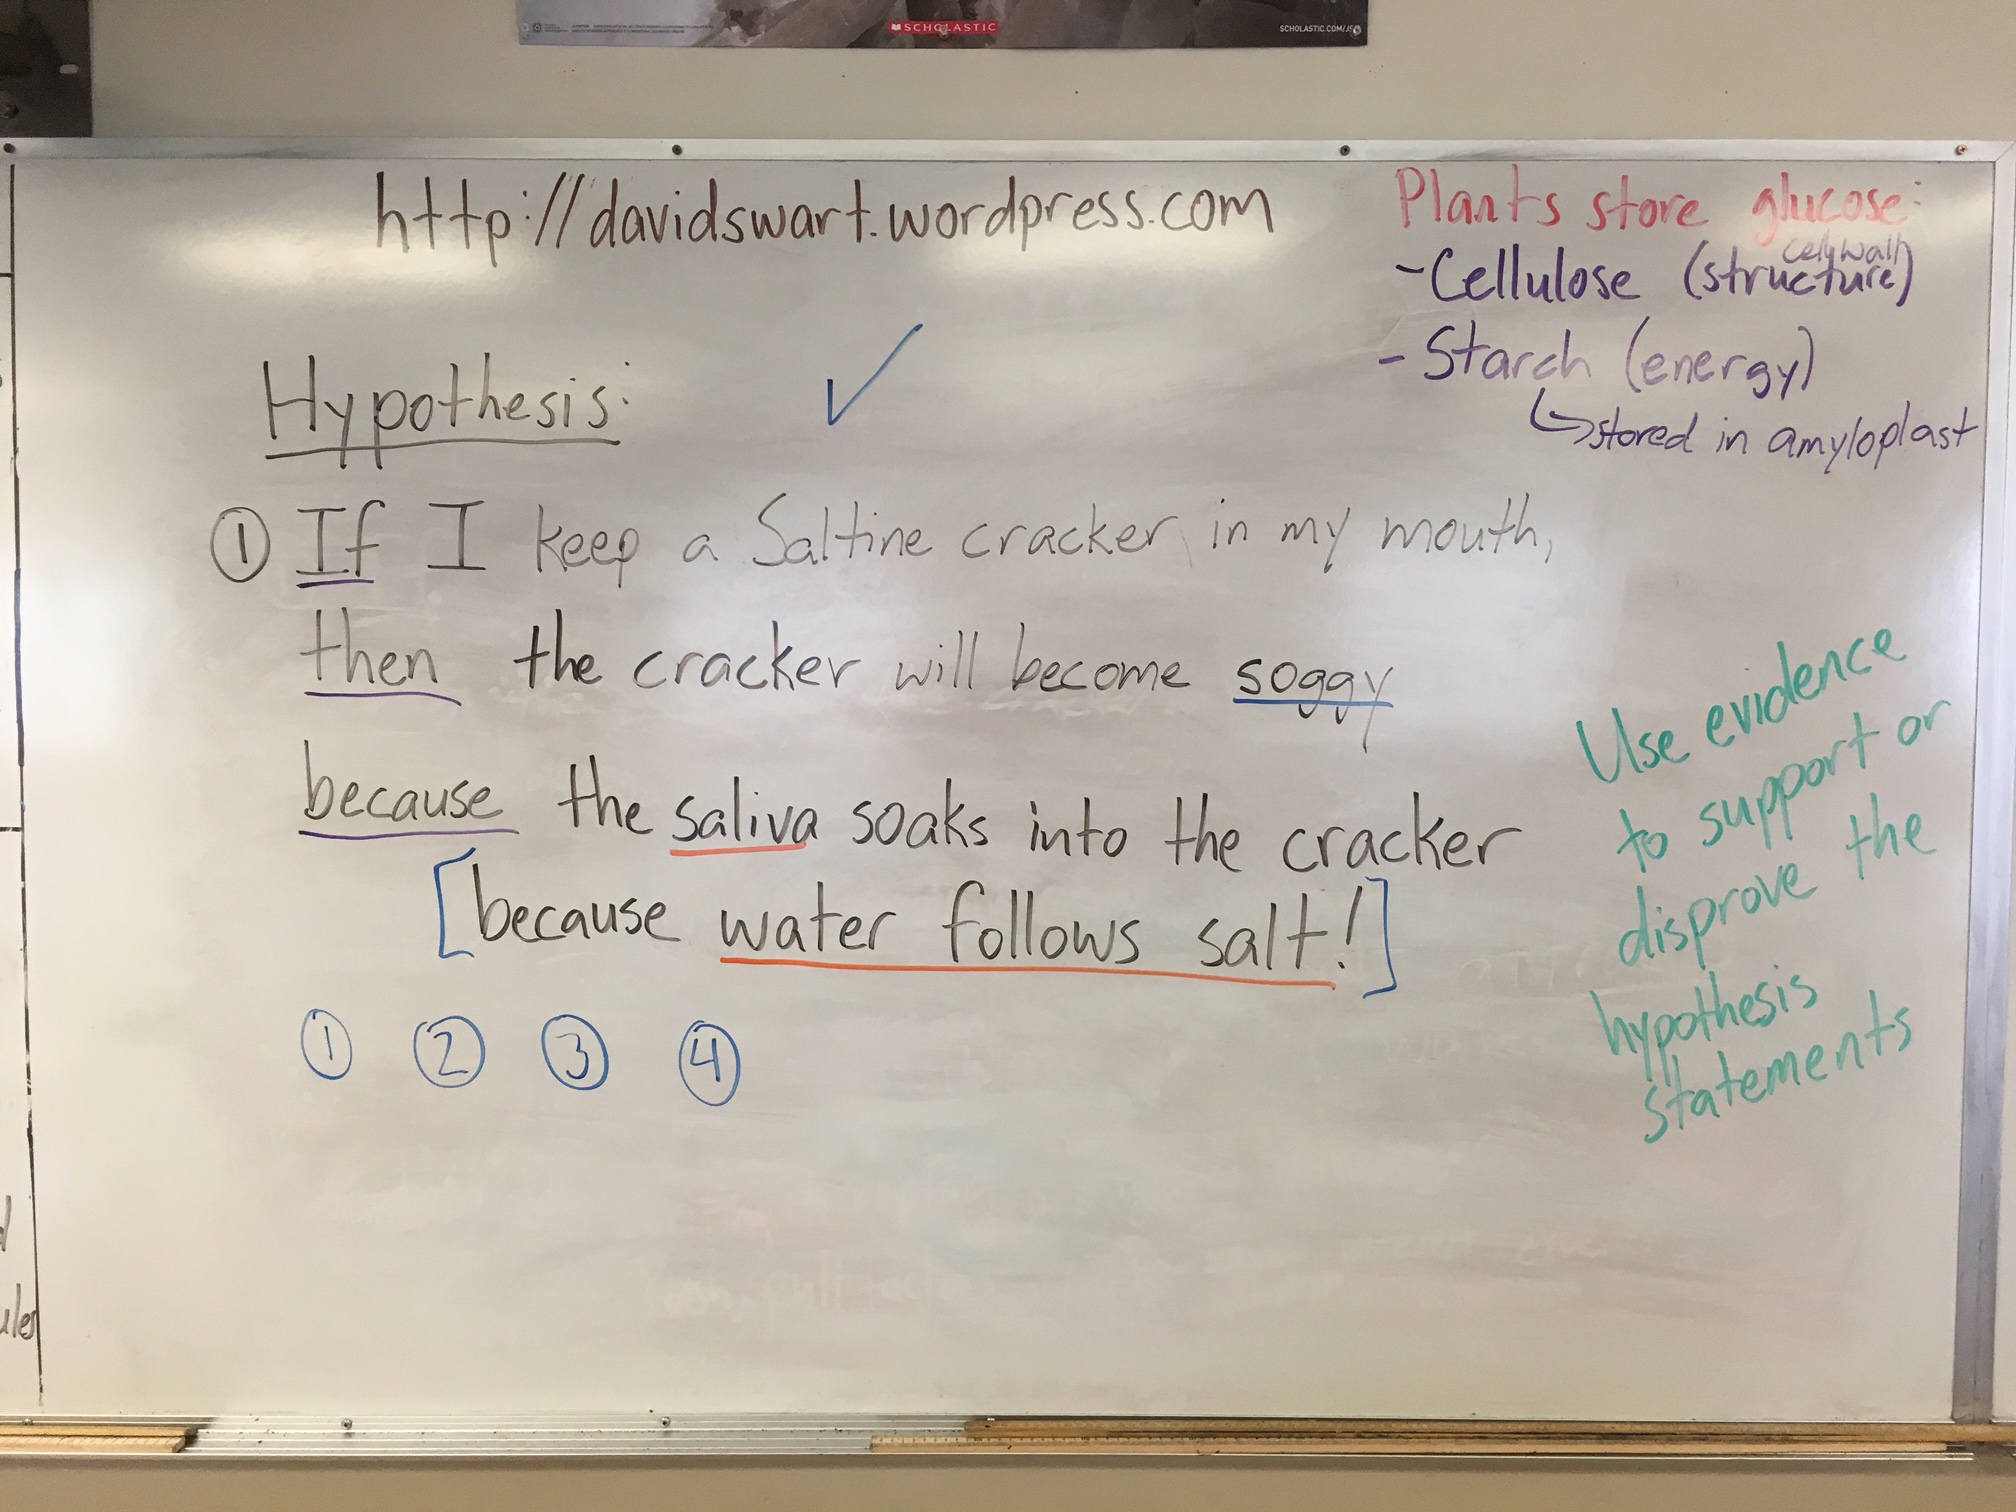 SCHOLASTIC
SCHOLASTIC.COM/JS
http://davidswart.wordpress.com
Plants store glucose:
cell wall
-Cellulose (structure)
- Starch (energy)
↳stored in amyloplast
Hypothesis: ✓
① If I keep a Saltine cracker in my mouth,
then the cracker will become soggy
because the saliva soaks into the cracker
[because water follows salt!]
① ② ③ ④
Use evidence
to support or
disprove the
hypothesis
statements